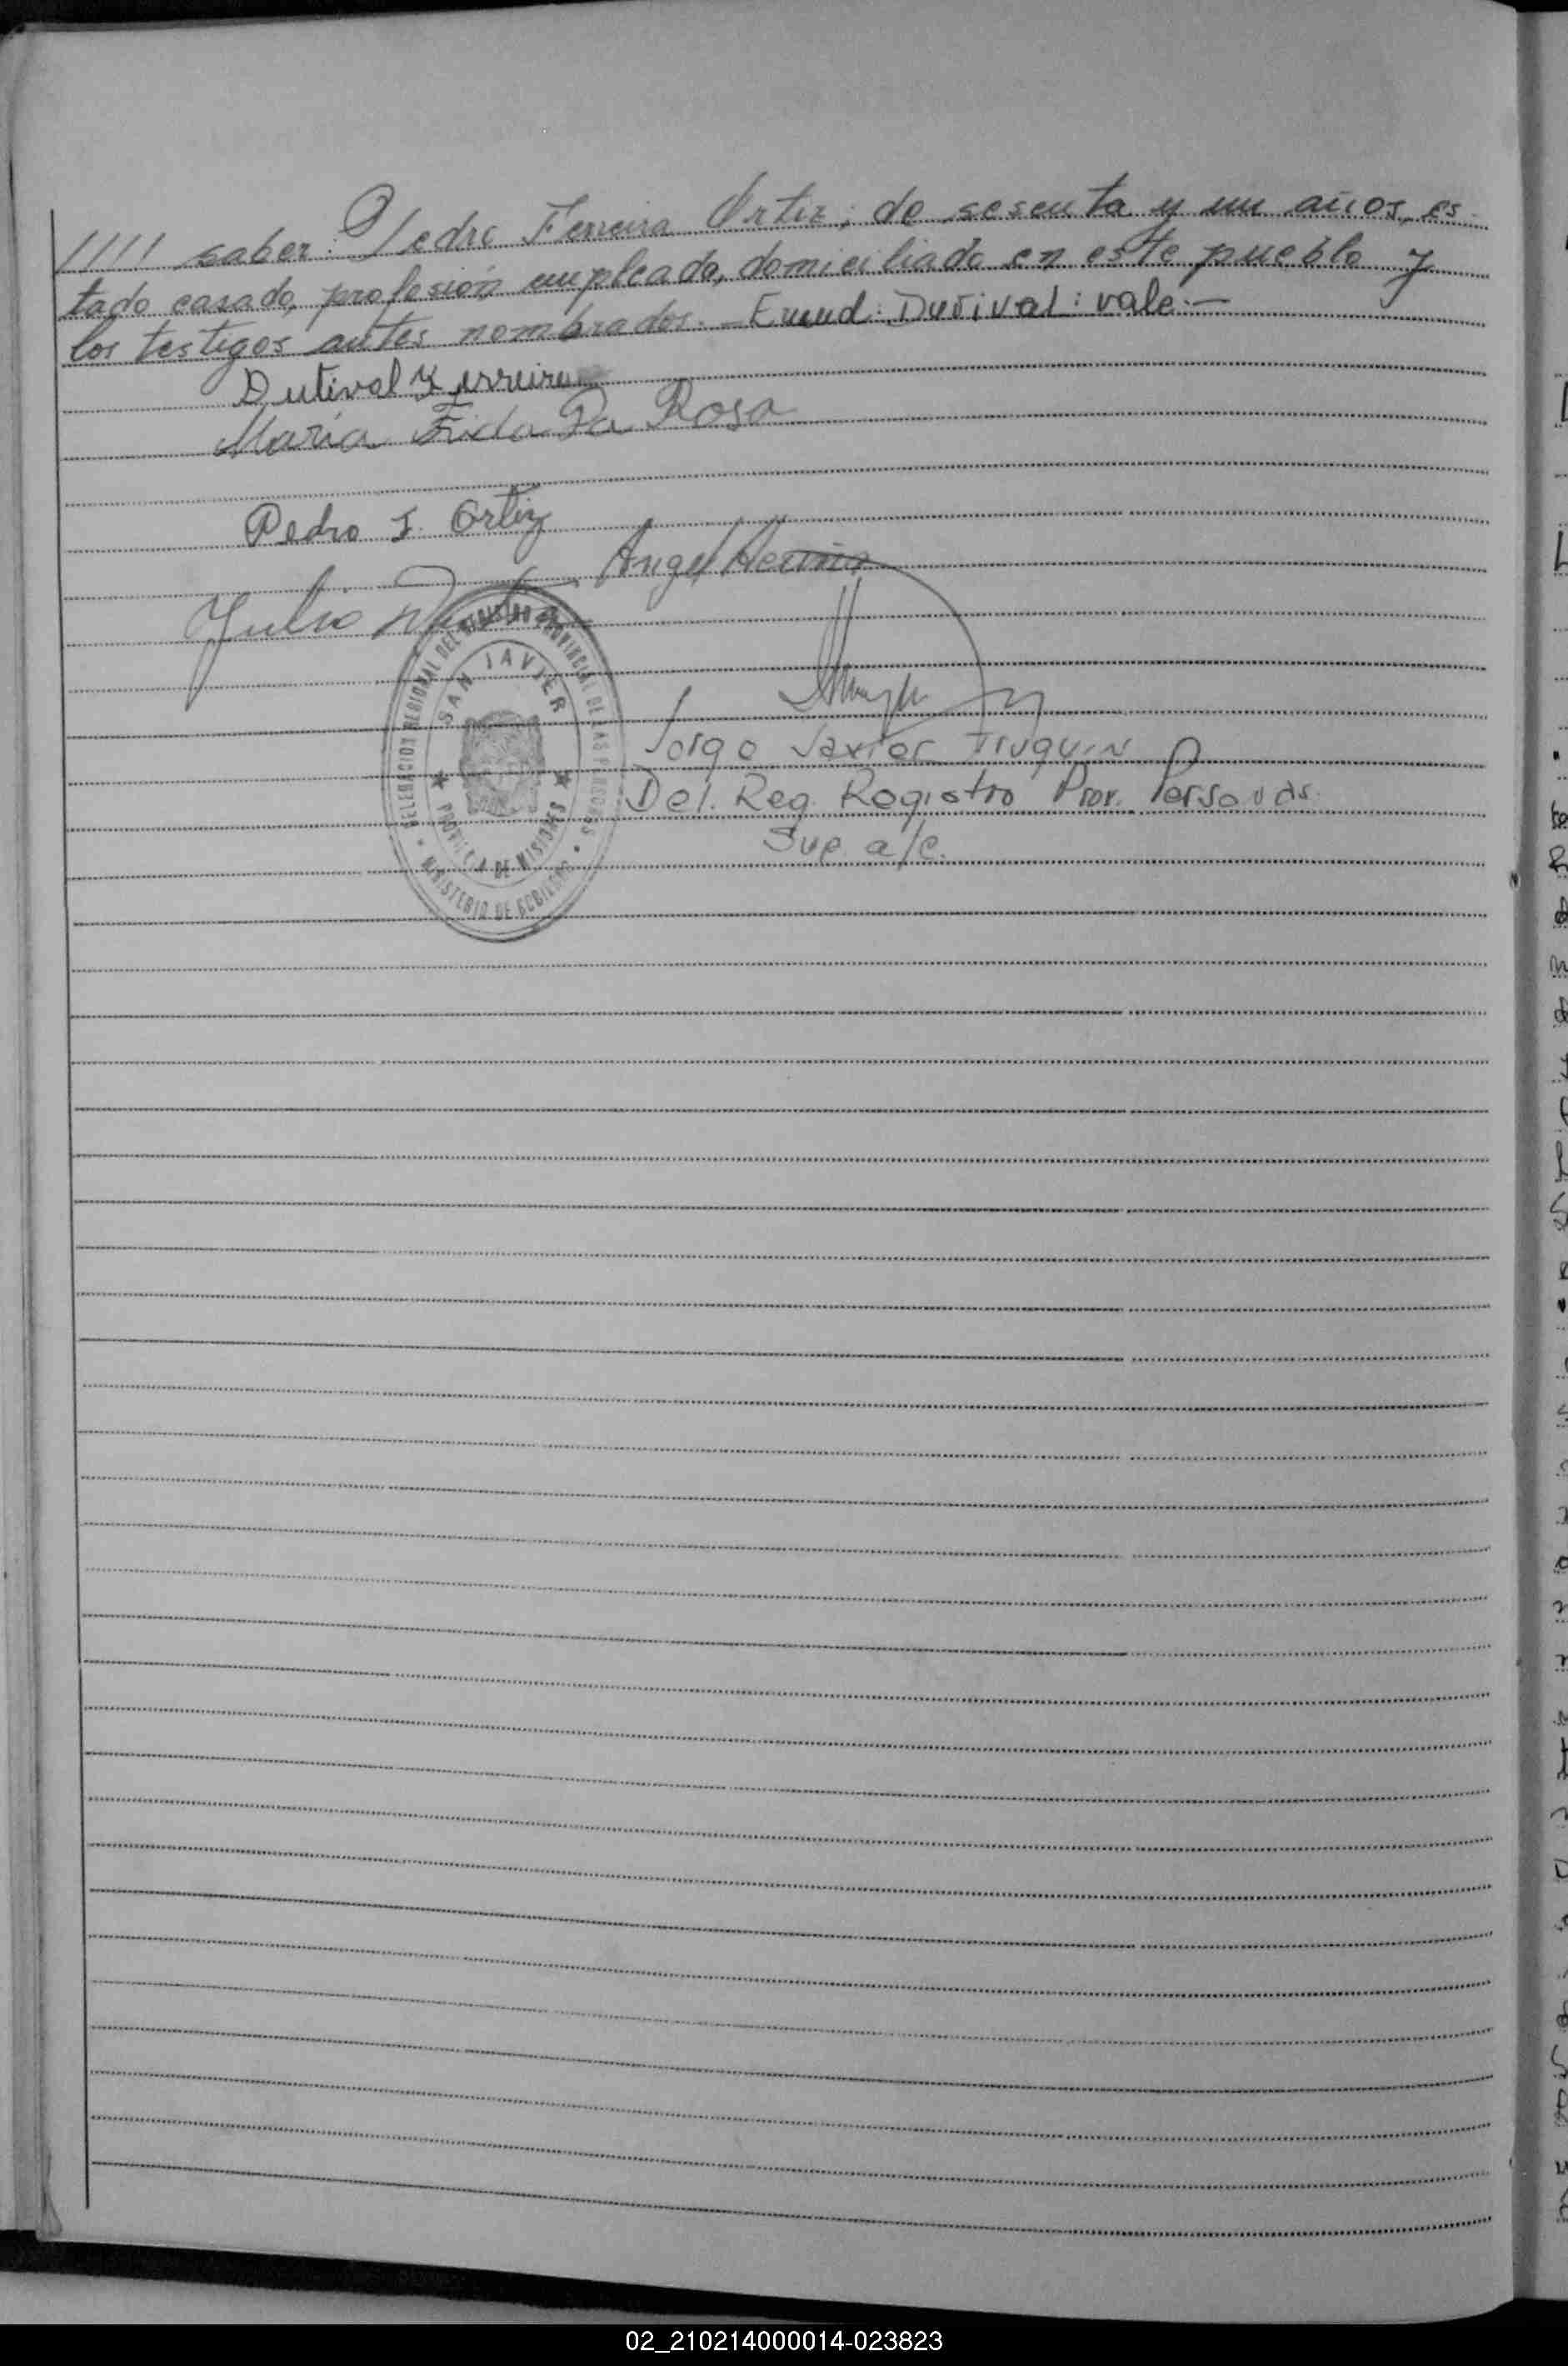 //// saber: Pedro Ferreira Ortiz; de sesenta y un años, es-
tado casado, profesión empleado, domiciliado en este pueblo y
los testigos antes nombrados. - Emend: Durival: vale. -
Dutival Ferreira
María Frida Da Rosa
Pedro F. Ortiz
Angel
Julio
DELEGACION REGIONAL DEL REGISTRO PROVINCIAL DE LAS PERSONAS
SAN JAVIER
PROVINCIA DE MISIONES
MINISTERIO DE GOBIERNO
Jorge Javier Truquin
Del. Reg. Registro Prov. Personas
Sup. a/c.
02_210214000014-023823